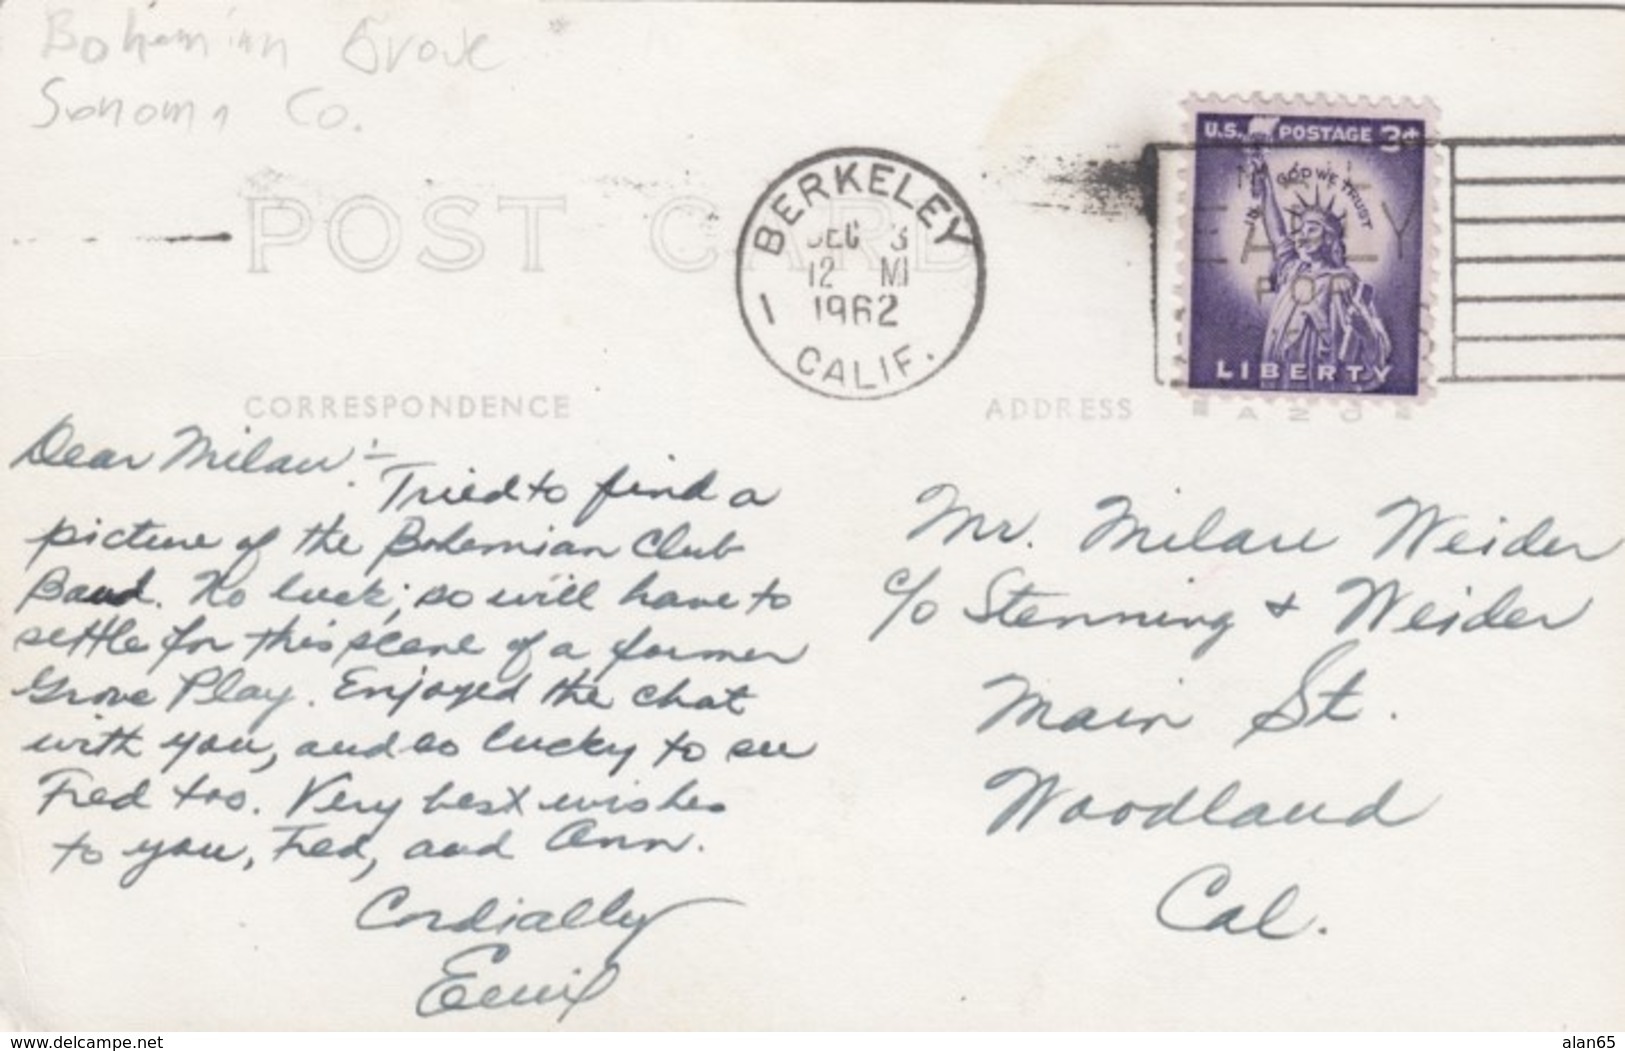 Bohemian Grove
Sonoma Co.
POST CARD
BERKELEY
DEC 3
12 M
1962
1
CALIF.
U.S. POSTAGE 3¢
IN GOD WE TRUST
LIBERTY
EARLY
FOR
CORRESPONDENCE
ADDRESS
Dear Milan:-
Tried to find a
picture of the Bohemian Club
Band. No luck; so will have to
settle for this scene of a former
Grove Play. Enjoyed the chat
with you, and so lucky to see
Fred too. Very best wishes
to you, Fred, and Ann.
Cordially
Emil
Mr. Milan Weider
c/o Stenning & Weider
Main St.
Woodland
Cal.
www.delcampe.net
alan65